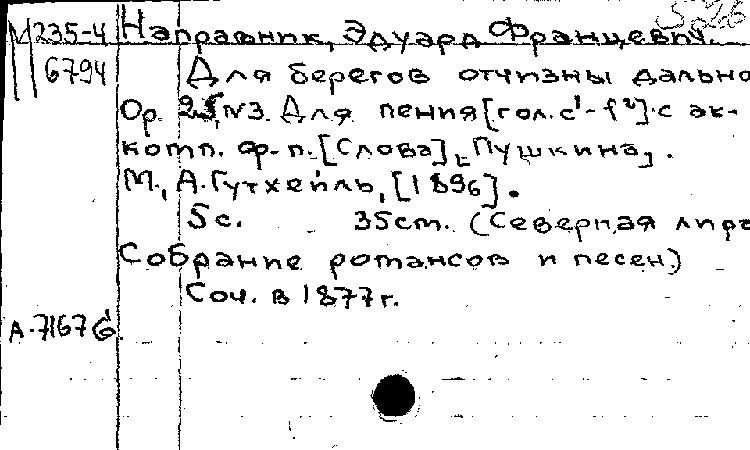 М 235-4 Направник, Эдуард Францевич.
6794 Для берегов отчизны дально
Ор. 25, №3. Для пения [гол. c¹-f²] с ак-
комп. ф-п. [Слова], Пушкина, .
М., А. Гутхейль, [1896].
5 с. 35 cm. (Северная лира
Собрание романсов и песен)
Соч. в 1877 г.
А-7167